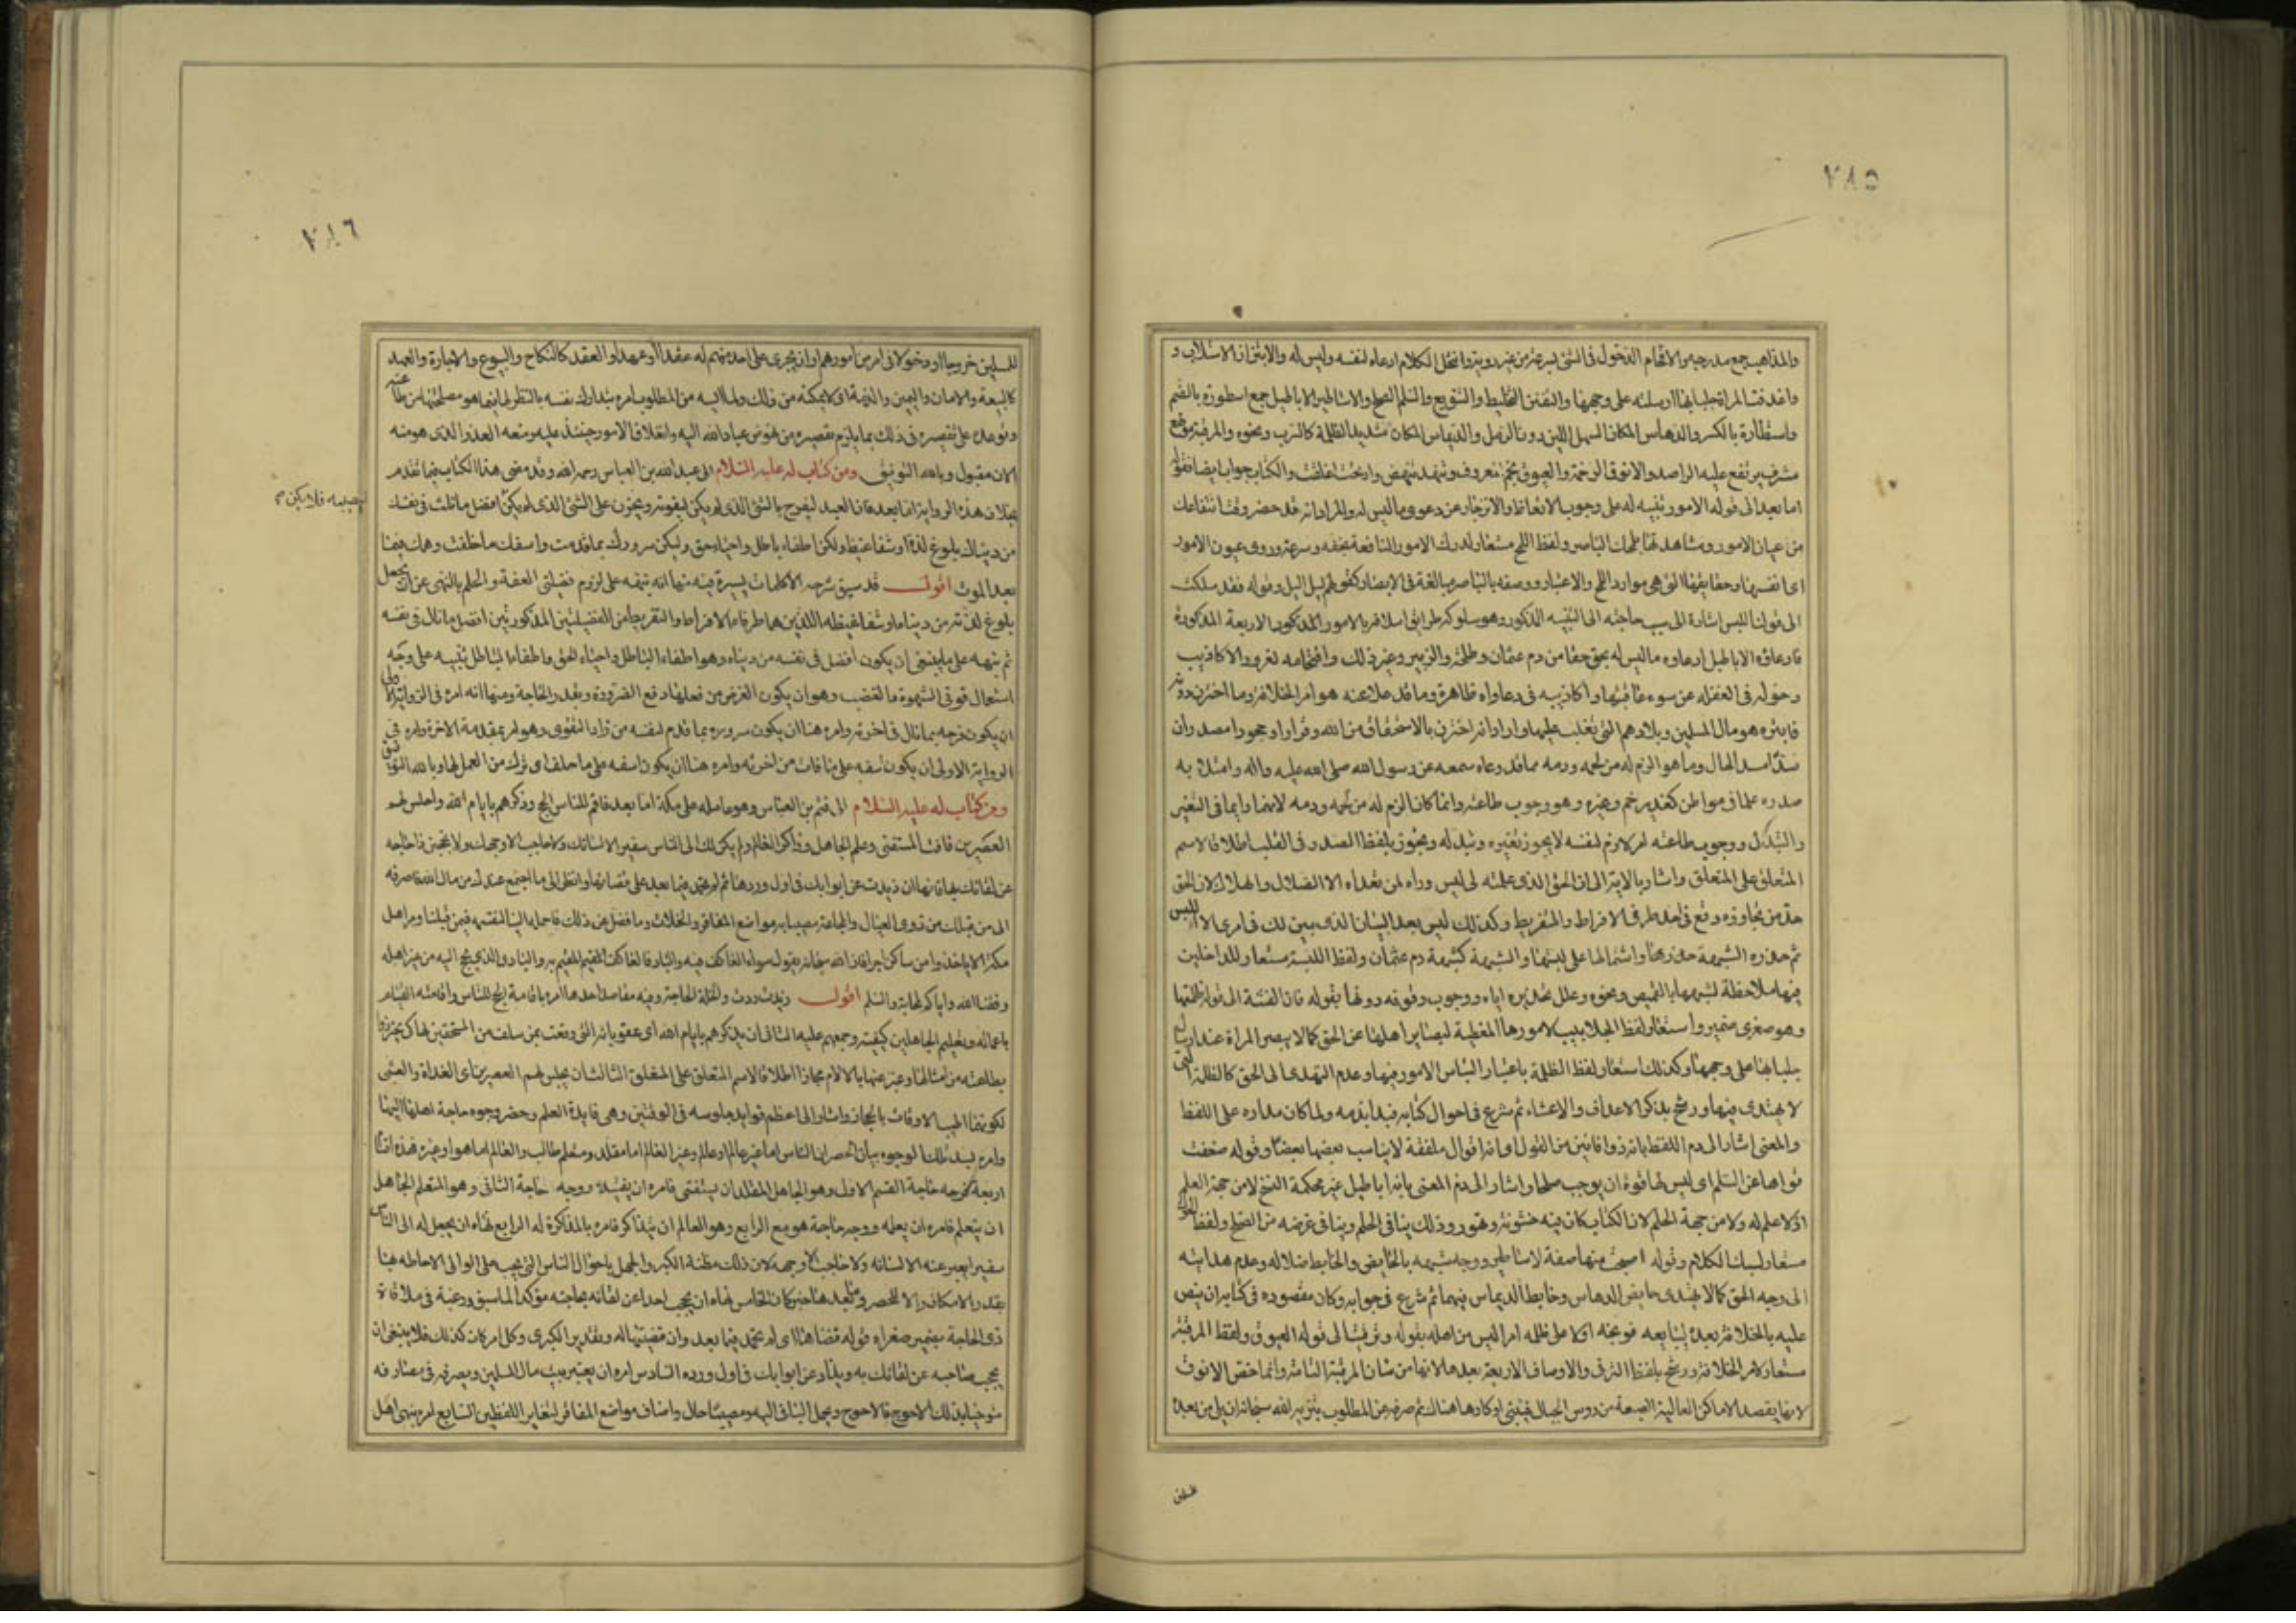 ٧٨٥
والمذاهب جمع مدرجه والاقحام الدخول فى الشئ بسرعة من غير روية وانتحل الكلام ادعاه لنفسه وليس له والابتزاز الاستلاب و
واغدفت المراة جلبابها ارسلته على وجهها والتفنن التخليط والتنويع والسلم الصلح والاساطير الاباطيل جمع اسطورة بالضم
واسطارة بالكسر والدهاس المكان السهل اللين دون الرمل والديماس المكان شديد الظلمة كالسرب ونحوه والمرقبة موضع
مشرف يرتفع عليه الراصد والانوق الرخمة والعيوق نجم معروف وتنهد تنهض وارتجت اغلقت والكتاب جواب ايضا فقوله
اما بعد الى قوله الامور تنبيه له على وجوب الاتعاظ والانزجار عن دعوى ما ليس له والمراد انه قد حضر وقت انتفاعك
من عيان الامور ومشاهدتها بلمحك الباصر ولفظ اللمح مستعار لدرك الامور النافعة بخفة وسرعة وروى عيون الامور
اى انفسها وحقايقها التى هى موارد اللمح والاعتبار ووصفه بالباصر مبالغة فى الابصار كقولهم ليل اليل وقوله فقد سلكت
الى قوله اللبس اشارة الى سبب حاجته الى التنبيه المذكور وهو سلوكه طرائق اسلافه بالامور المذكورة الاربعة المذكورة
فادعاؤه الاباطيل ادعاوه ما ليس له بحق حقا من دم عثمان وطلحة والزبير وغير ذلك واقتحامه لغرور الاكاذيب
دخوله فى الغفلة عن سوء عاقبتها واكاذيبه فى دعاواه ظاهرة وما قد علا عنه هو امر الخلافة وما اختزن دونه
فابتزه هو مال المسلين وبلادهم التى تغلب عليها واراد انه اختزن بالاستحقاق من الله وفرارا وجحودا مصدران
سدّا مسد الحال وما هو الزم له من لحمه ودمه مما قد وعاه سمعه عن رسول الله صلى الله عليه واله وامتلا به
صدره علما فى مواطن كغدير خم وغيره وهو وجوب طاعته وانما كان الزم له من لحمه ودمه لانهما دايما فى التغير
والتبدل ووجوب طاعته امر لازم لنفسه لا يجوز تغيره وتبدله وتجوز بلفظ الصدر فى القلب اطلاقا لاسم
المتعلق على المتعلق واشار بالاية الى ان الحق الذى علمته لى ليس وراءه لمن تعداه الا الضلال والهلاك لان الحق
حد من تجاوزه وقع فى احد طرفى الافراط والتفريط وكذلك ليس بعد البيان الذى بين لك فى امرى الا اللبس
ثم حذره الشبهة حذرها واشتمالها على لبسها والشبهة كشبهة دم عثمان ولفظ اللبسة مستعار للداخلين
فيها ملاحظة لشبهها بالقميص ونحوه وعلل تحذيره اياه ووجوب وقوفه دونها بقوله فان الفتنة الى قوله ظلمتها
وهو صغرى ضمير واستعار لفظ الجلابيب لامورها المغطية لبصاير اهلها عن الحق كما لا يبصر المراة عند ارسالها
جلبابها على وجهها وكذلك استعار لفظ الظلمة باعتبار التباس الامور فيها وعدم التهدى الى الحق كالظلمة التى
لا يهتدى فيها ورشح بذكر الاغداف والاعشاء ثم شرع فى احوال كتابه فبدا بذمه ولما كان مداره على اللفظ
والمعنى اشار الى ذم اللفظ بانه ذو افانين من القول اى انه اقوال ملفقة لا يناسب بعضها بعضا وقوله ضعفت
قواها عن السلم اى ليس لها قوة ان يوجب صلحا واشار الى ذم المعنى بانه اباطيل غير محكمة النسج لا من جهة العلم
اذ لا علم له ولا من جهة الحلم لان الكتاب كان فيه خشونة وتهور وذلك ينافى الحلم وينافى غرضه من الصلح ولفظ الحوك
مستعار لسبك الكلام وقوله اصبحت منها صفة لاساطير ووجه شبهه بالخايض والخابط ضلاله وعدم هدايته
الى وجه الحق كما لا يهتدى خايض الدهاس وخابط الديماس فيهما ثم شرع فى جوابه وكان مقصوده فى كتابه ان ينص
عليه بالخلافة بعده ليبايعه فوبخه اولا على طلبه امرا ليس من اهله بقوله وترقيت الى قوله العيوق ولفظ المرقبة
مستعار لامر الخلافة ورشح بلفظ الترقى والاوصاف الاربعة بعدها لانها من شان المرقبة التامة وانما خص الانوق
لانها يقصد الاماكن العالية الصعبة من روس الجبال فيبنى اوكارها هناك ثم صرفه عن المطلوب بتنزيه الله سبحانه ان يلى من بعده
للمسلين
٧٨٦
للمسلين خروجا او دخولا فى امر من امورهم وان يجرى على احد منهم له عقدا او عهدا والعقد كالنكاح والبيوع والاجارة والعهد
كالبيعة والامان واليمين والذمة اى لا يمكنه من ذلك ولما اليه من المطلوب امره بتدارك نفسه بالنظر لها فيما هو مصلحتها من طاعته
وتوعده على تقصيره فى ذلك بما يلزم تقصيره من نهوض عباد الله اليه وانغلاق الامور حينئذ عليه ومنعه العذر الذى هو منه
الان مقبول وبالله التوفيق ومن كتاب له عليه السلام الى عبد الله بن العباس رحمه الله وقد مضى هذا الكتاب فيما تقدم
بخلاف هذه الرواية اما بعد فان العبد ليفرح بالشئ الذى لم يكن ليفوته ويحزن على الشئ الذى لم يكن افضل ما نلت فى نفسك
ليصيبه فلا يكن
من دنياك بلوغ لذة او شفا غيظ ولكن اطفاء باطل واحياء حق وليكن سرورك بما قدمت واسفك ما خلفت وهمك فيما
بعد الموت اقول قد سبق شرحه الا كلمات يسيرة فيه منها انه تنبه على لزوم فضيلتى العفة والحلم بالنهى عن ان يجعل
بلوغ لذته من دنياه او شفا غيظه اللذين هما طرفا الافراط والتفريط من الفضيلتين المذكورتين افضل ما نال فى نفسه
ثم نبهه على ما ينبغى ان يكون افضل فى نفسه من دنياه وهو اطفاء الباطل واحياء الحق واطفاء الباطل تنبيه على وجه
استعمال قوتى الشهوة والغضب وهو ان يكون الغرض من فعلهما دفع الضرورة وبقدر الحاجة ومنها انه امره فى الرواية الاولى
ان يكون فرحه بما نال فى اخرته وامره هنا ان يكون سروره بما قدم لنفسه من زاد التقوى وهو امر بمقدمة الاخرة وامره فى
الرواية الاولى ان يكون اسفه على ما فات من اخرته وامره هنا ان يكون اسفه على ما خلف اى ترك من العمل لها وبالله التوفيق
ومن كتاب له عليه السلام الى قثم بن العباس وهو عامله على مكة اما بعد فاقم للناس الحج وذكرهم بايام الله واجلس لهم
العصرين فافت المستفتى وعلم الجاهل وذاكر العالم ولم يكن لك الى الناس سفير الا لسانك ولا حاجب الا وجهك ولا تحجبن ذا حاجة
عن لقائك بها فانها ان ذيدت عن ابوابك فى اول وردها ثم لم تحمد فيما بعد على قضائها وانظر الى ما اجتمع عندك من مال الله فاصرفه
الى من قبلك من ذوى العيال والمجاعة مصيبا به مواضع المفاقر والخلات وما فضل عن ذلك فاحمله الينا لنقسمه فيمن قبلنا ومر اهل
مكة الا ياخذوا من ساكن اجرا فان الله سبحانه يقول سواء العاكف فيه والباد فالعاكف المقيم به والبادى الذى يحج اليه من غير اهله
وفقنا الله واياكم لمحابه والسلم اقول ذيدت ردت والخلة الحاجة وفيه مقاصد احدها امره باقامة الحج للناس واقامته القيام
باعماله وتعليم الجاهلين كيفيته وجمعهم عليه الثانى ان يذكرهم بايام الله اى عقوباته التى وقعت بمن سلف من المستحقين لها كى يحترزوا
بطاعته من امثالها وعبر عنها بالايام مجازا اطلاقا لاسم المتعلق على المتعلق الثالث ان يجلس لهم العصرين اى الغداة والعشى
لكونهما اطيب الاوقات بالحجاز واشار الى اعظم فوايد جلوسه فى الوقتين وهى فايدة العلم وحصر وجوه حاجة اهلها اليها
وامره بسد تلك الوجوه بيان الحصر ان الناس اما غير عالم او عالم وغير العالم اما مقلد ومتعلم طالب والعالم اما هو او غيره فهذه اقسام
اربعة فوجه حاجة القسم الاول وهو الجاهل المقلد ان يستفتى فامره ان يفتيه ووجه حاجة الثانى وهو المتعلم الجاهل
ان يتعلم فامره ان يعلمه ووجه حاجة هو مع الرابع وهو العالم ان يتذاكر فامره بالمذاكرة له الرابع نهاه ان يجعل له الى الناس
سفيرا يعبر عنه الا لسانه ولا حاجبا الا وجهه لان ذلك مظنة الكبر والجهل باحوال الناس التى يجب على الوالى الاحاطه بها
بقدر الامكان والا للحصر وما بعدها خبر كان الخامس نهاه ان يحجب احدا عن لقائه بحاجته مؤكدا لما سبق ورغبة فى ملاقاة
ذى الحاجة بضمير صغراه قوله فضاها اى لم تحمد فيما بعد وان قضيتها له وتقدير الكبرى وكل امر كان كذلك فلا ينبغى ان
يحجب صاحبه عن لقائك به ويذاد عن ابوابك فى اول ورده السادس امره ان يعتبر بيت مال المسلين ويصرفه فى مصارفه
متوخيا بذلك الاحوج فالاحوج ويحمل الباقى اليه ومصيبا حال واضاف مواضع المفاقر لتغاير اللفظين السابع امره بنهى اهل